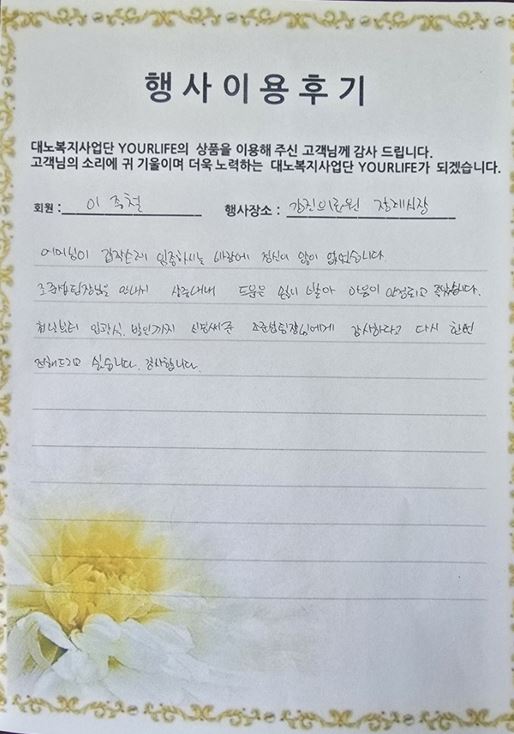 행사이용후기
대노복지사업단 YOURLIFE의 상품을 이용해 주신 고객님께 감사 드립니다.
고객님의 소리에 귀 기울이며 더욱 노력하는 대노복지사업단 YOURLIFE가 되겠습니다.
회원 : 이 축철 행사장소 : 강진의료원 장례식장
어머님이 갑작스레 임종하시는 바람에 정신이 많이 없었습니다.
조문법팀장님을 만나서 상중내내 도움은 많이 받아 마음이 안정되고 좋았습니다.
첫날부터 입관식, 발인까지 신경써준 조문법팀장님에게 감사하다고 다시 한번
전해드리고 싶습니다. 감사합니다.